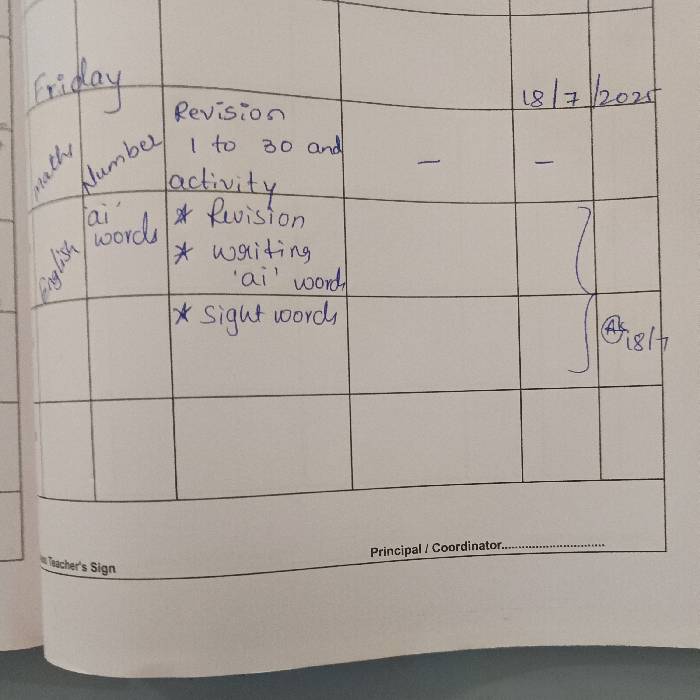 Friday
18/7/2025
Maths
Number
Revision
1 to 30 and
activity
-
-
English
'ai'
words
* Revision
* writing
'ai' words
* Sight words
18/7
Teacher's Sign
Principal / Coordinator..............................